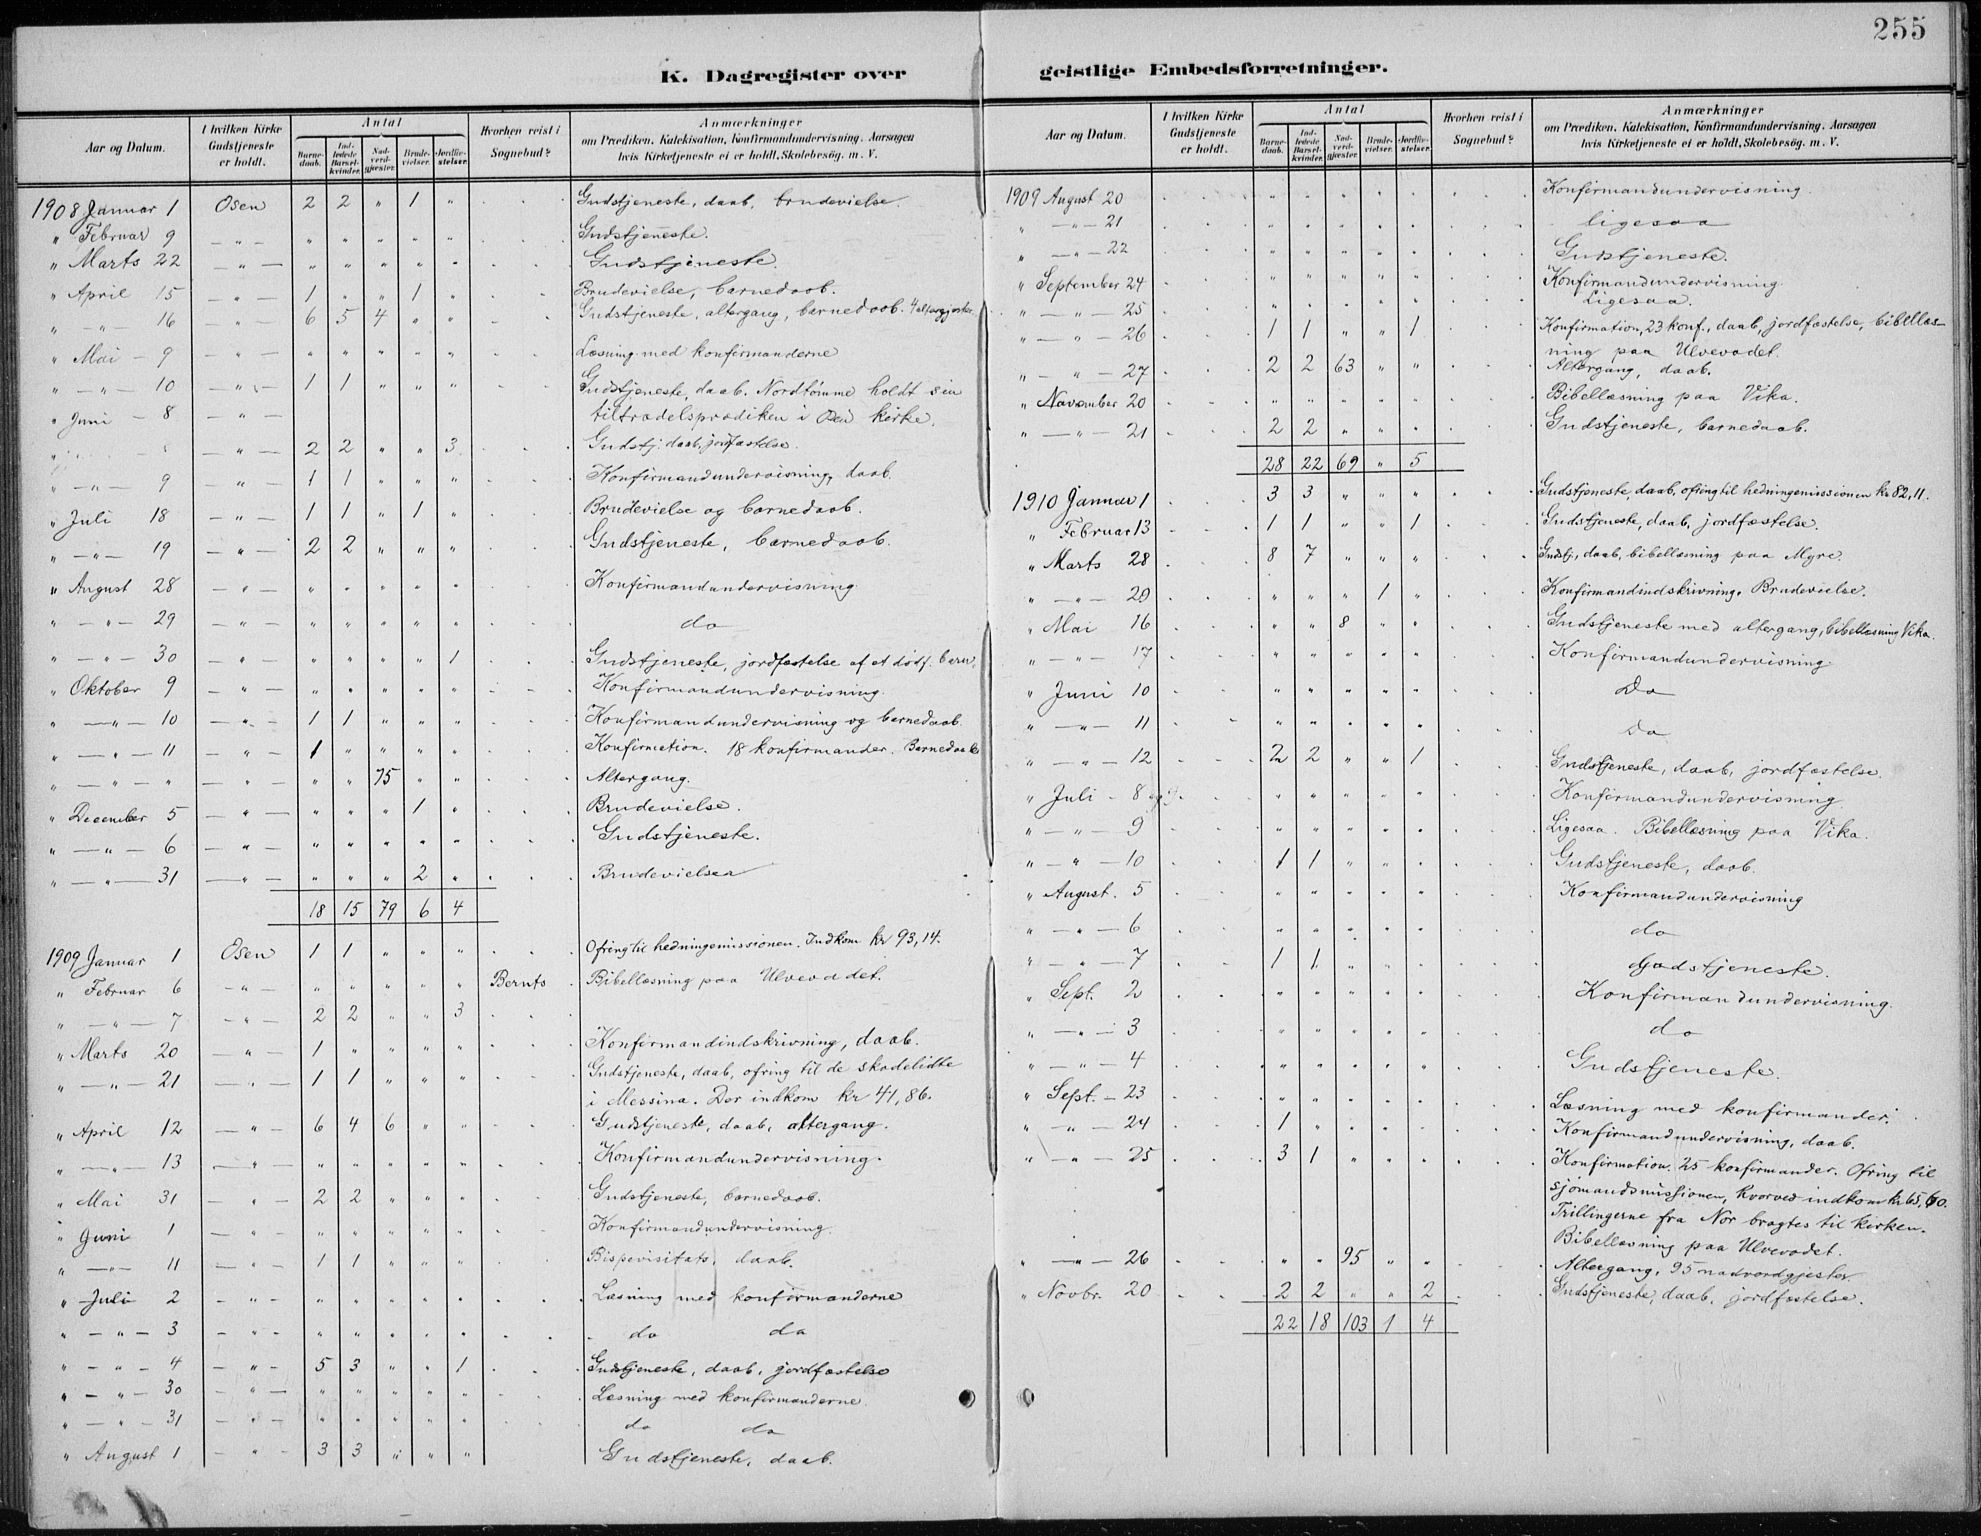 255
K. Dagregister over geistlige Embedsforretninger.
Aar og Datum. I hvilken Kirke Gudstjeneste er holdt. Antal Barnedaab. Indledede Barselkvinder. Nadverdgjester. Brudevielser. Jordfæstelser. Hvorhen reist i Sognebud? Anmærkninger om Prædiken, Katekisation, Konfirmandundervisning, Aarsagen hvis Kirketjeneste ei er holdt, Skolebesög. m. V.
1908 Januar 1 Osen 2 2 " 1 " Gudstjeneste, daab, brudevielse.
" Februar 9 — " — " " " " " Gudstjeneste.
" Marts 22 — " — " " " " " Gudstjeneste.
" April 15 — " — 1 " " 1 " Brudevielse, barnedaab.
" — " — 16 — " — 6 5 4 " " Gudstjeneste, altergang, barnedaab. 4 altergjester.
" Mai — 9 — " — " " " " " Læsning med konfirmanderne
" — " — 10 — " — 1 1 " " " Gudstjeneste, daab. Nordtømme holdt sin
" Juni — 8 — " — tiltrædelsprædiken i Osen kirke.
— " — 2 2 " " 3 Gudstj. daab, jordfæstelse.
" — " — 9 — " — 1 1 " " " Konfirmandundervisning, daab.
" Juli 18 — " — 1 1 " 1 " Brudevielse og barnedaab.
" — " — 19 — " — 2 2 " " " Gudstjeneste, barnedaab.
" August 28 — " — " " " " " Konfirmandundervisning
" — " — 29 — " — " " " " " do
" — " — 30 — " — " " " " 1 Gudstjeneste, jordfæstelse af et dödf. barn.
" Oktober 9 — " — " " " " " Konfirmandundervisning.
" — " — 10 — " — 1 1 " " " Konfirmandundervisning og barnedaab.
" — " — 11 — " — 1 " " " " Konfirmation. 18 konfirmander. Barnedaab
" — " — " — " — " " 75 " " Altergang.
" December 5 — " — " " " 1 " Brudevielse.
" — " — 6 — " — " " " " " Gudstjeneste.
" — " — 31 — " — " " " 2 " Brudevielser
18 15 79 6 4
1909 Januar 1 Osen 1 1 " " " Ofring til hedningemissionen. Indkom kr 93,14.
" Februar 6 — " — " " " " " Bernts Bibellæsning paa Ulvevadet.
" — " — 7 — " — 2 2 " " 3
" Marts 20 — " — 1 " " " " Konfirmandindskrivning, daab.
" — " — 21 — " — 1 1 " " " Gudstjeneste, daab, ofring til de skadelidte
i Messina. Der indkom kr 41,86.
" April 12 — " — 6 4 6 " " Gudstjeneste, daab, altergang.
" — " — 13 — " — " " " " " Konfirmandundervisning.
" Mai 31 — " — 2 2 " " " Gudstjeneste, barnedaab.
" Juni 1 — " — " " " " " Konfirmandundervisning.
" — " — 11 — " — 1 1 " " " Bispevisitats, daab.
" Juli 2 — " — " " " " " Læsning med konfirmanderne
" — " — 3 — " — " " " " " do do
" — " — 4 — " — 5 3 " " 1 Gudstjeneste, daab, jordfæstelse
" — " — 30 — " — " " " " " Læsning med konfirmanderne.
" — " — 31 — " — " " " " " do do
" August 1 — " — 3 3 " " " Gudstjeneste, daab.
Aar og Datum. I hvilken Kirke Gudstjeneste er holdt. Antal Barnedaab. Indledede Barselkvinder. Nadverdgjester. Brudevielser. Jordfæstelser. Hvorhen reist i Sognebud? Anmærkninger om Prædiken, Katekisation, Konfirmandundervisning, Aarsagen hvis Kirketjeneste ei er holdt, Skolebesög. m. V.
1909 August 20 " " " " " Konfirmandundervisning.
" — " — 21 " " " " " ligesaa
" — " — 22 " " " " " Gudstjeneste.
" September 24 " " " " " Konfirmandundervisning.
" — " — 25 " " " " " Ligesaa.
" — " — 26 1 1 " " 1 Konfirmation, 23 konf., daab, jordfæstelse, bibellæs-
ning paa Ulvevadet.
" — " — 27 2 2 63 " " Altergang, daab.
" November 20 " " " " " Bibellæsning paa Vika.
" — " — 21 2 2 " " " Gudstjeneste, barnedaab.
28 22 69 " 5
1910 Januar 1 3 3 " " " Gudstjeneste, daab, ofring til hedningemissionen kr 82,11.
" Februar 13 1 1 " " 1 Gudstjeneste, daab, jordfæstelse.
" Marts 28 8 7 " " " Gudstj., daab, bibellæsning paa Myre.
" — " — 29 " " " 1 " Konfirmandindskrivning. Brudevielse.
" Mai 16 " " 8 " " Gudstjeneste med altergang, bibellæsning Vika.
" — " — 17 " " " " " Konfirmandundervisning.
" Juni 10 " " " " " Do
" — " — 11 " " " " " Do
" — " — 12 2 2 " " 1 Gudstjeneste, daab, jordfæstelse.
" Juli — 8 " " " " " Konfirmandundervisning
" — " — 9 " " " " " Ligesaa. Bibellæsning paa Vika.
" — " — 10 1 1 " " " Gudstjeneste, daab.
" August. 5 " " " " " Konfirmandundervisning
" — " — 6 " " " " " do
" — " — 7 1 1 " " " Gudstjeneste.
" Sept. 2 " " " " " Konfirmandundervisning.
" — " — 3 " " " " " do
" — " — 4 " " " " " Gudstjeneste.
" Sept. — 23 " " " " " Læsning med konfirmander.
" — " — 24 1 " " " " Konfirmandundervisning, daab.
" — " — 25 3 1 " " " Konfirmation. 25 konfirmander. Ofring til
sjömandsmissionen, hvorved indkom kr 65,60.
Trillingerne fra Nor bragtes til kirken.
Bibellæsning paa Ulvevadet.
" — " — 26 " " 95 " " Altergang, 95 nadverdgjester.
" Novbr. 20 2 2 " " 2 Gudstjeneste, daab, jordfæstelse.
22 18 103 1 4